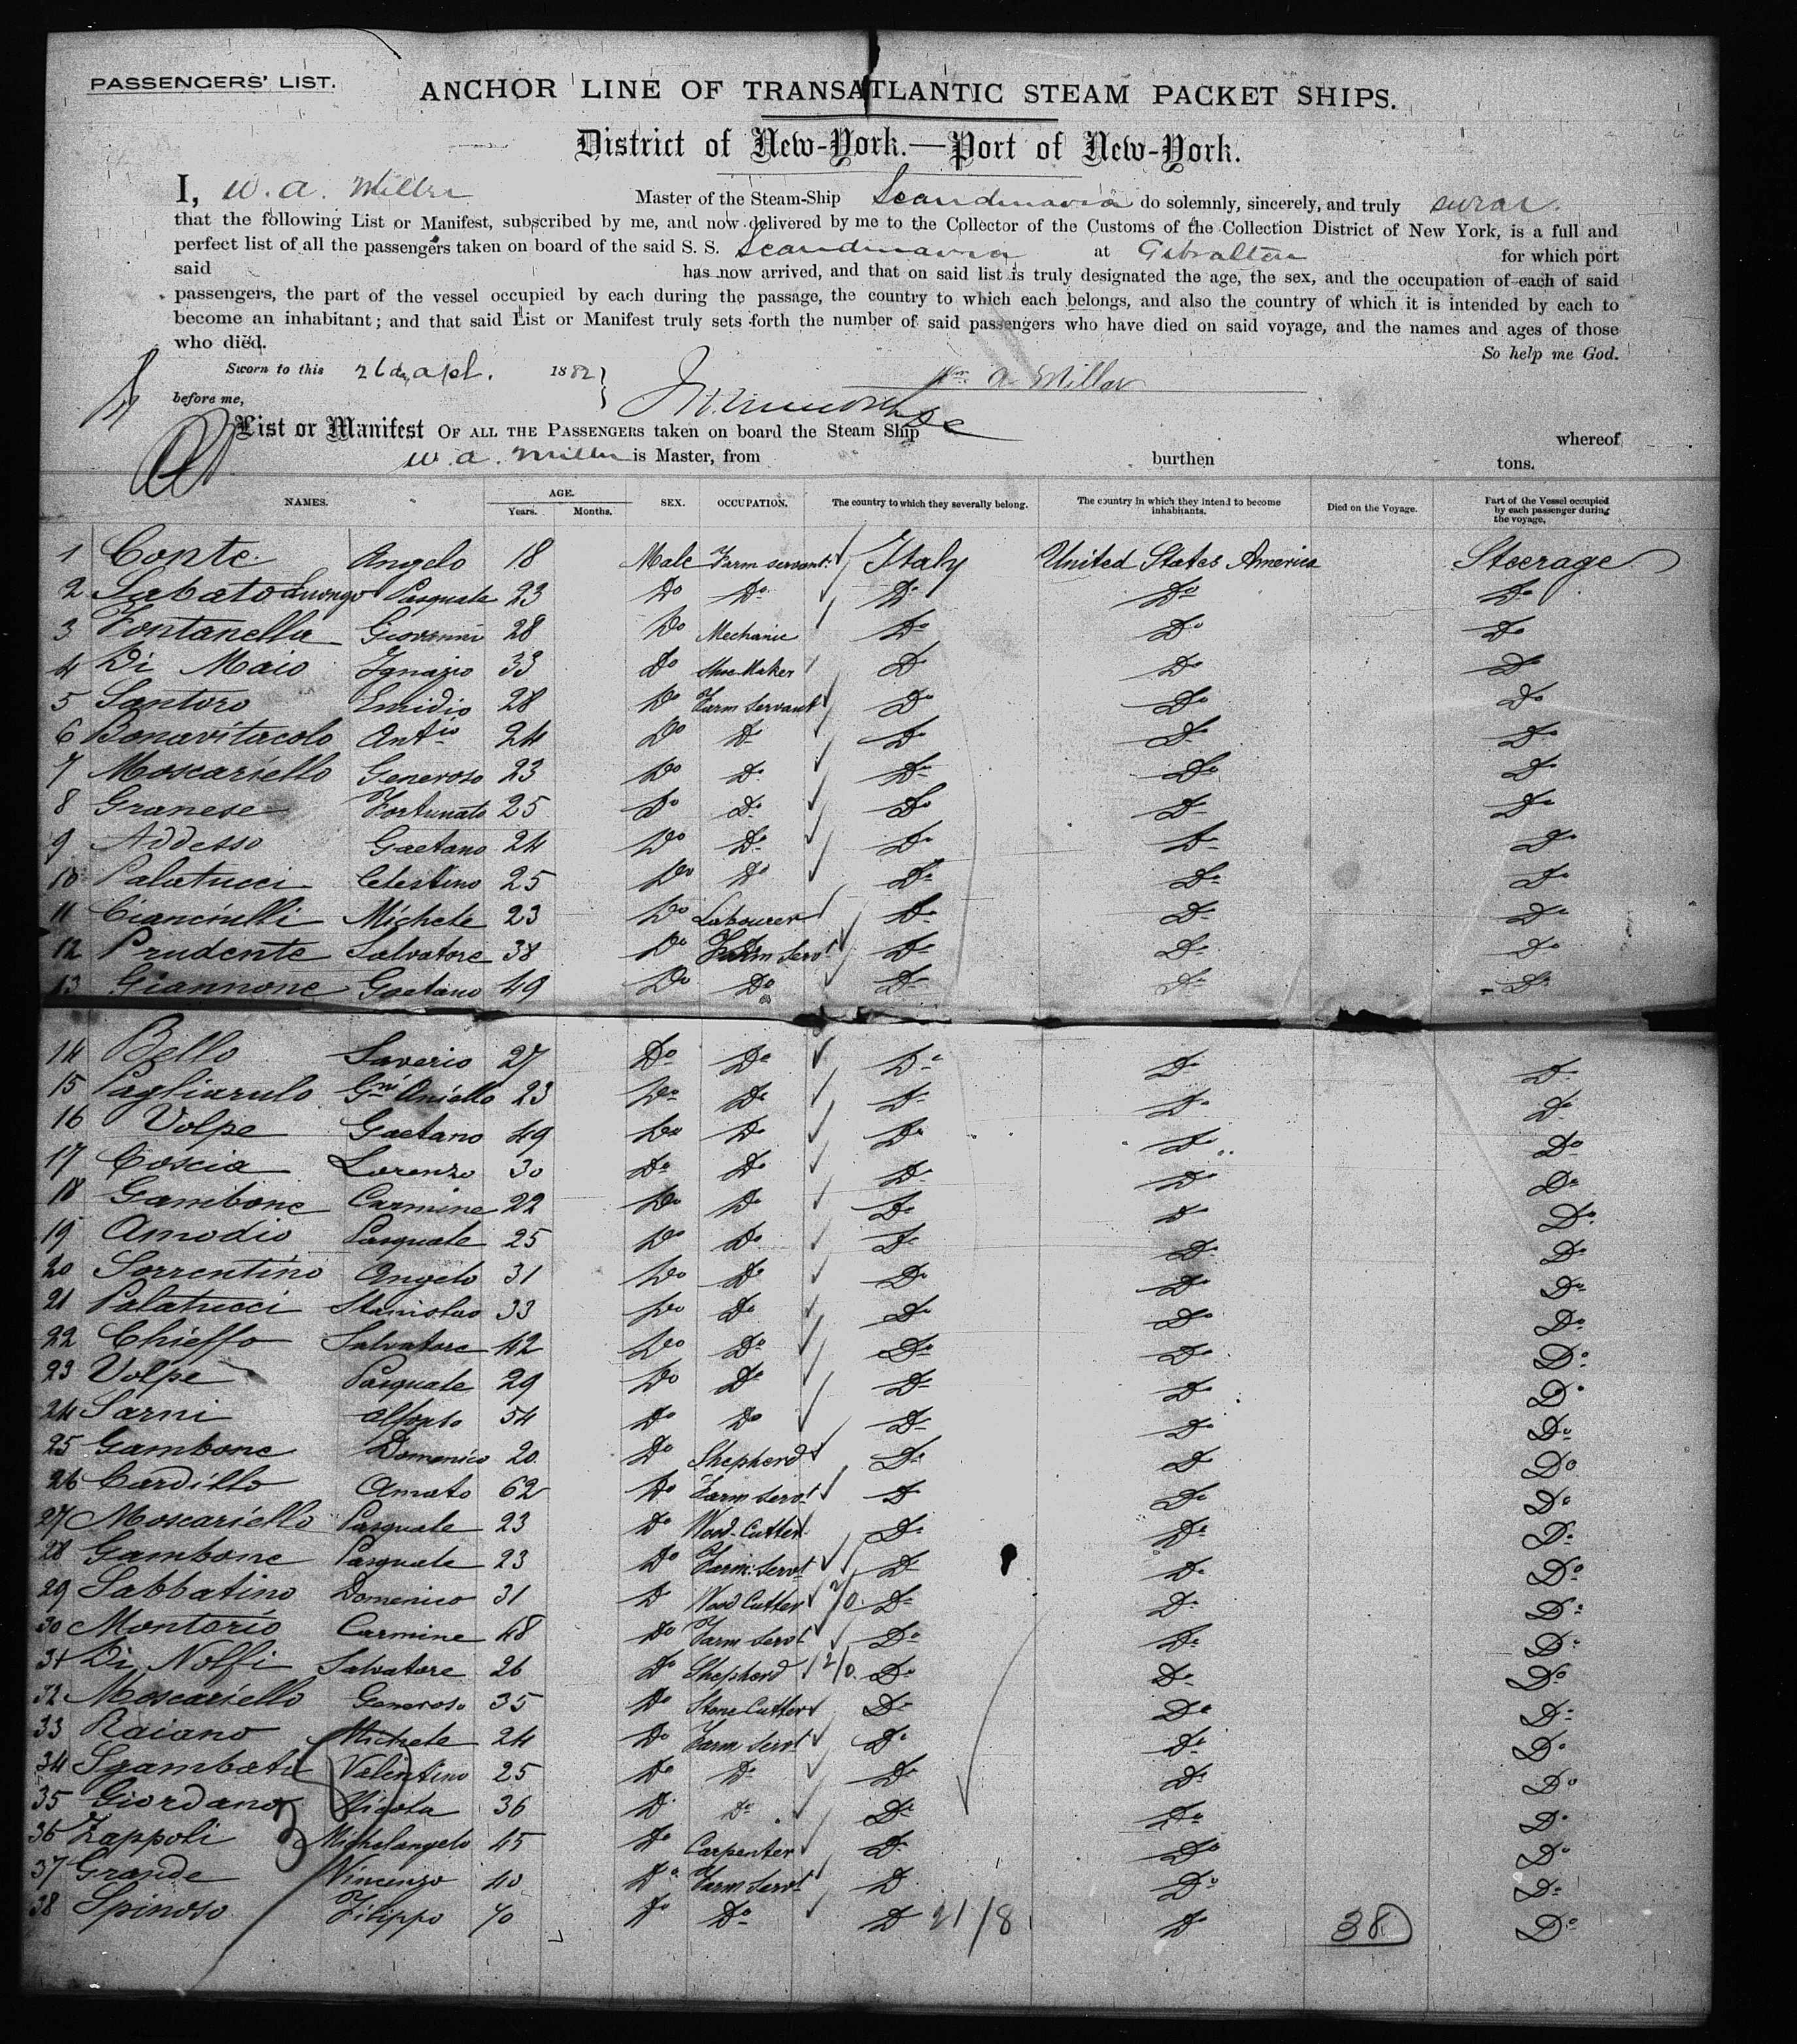 PASSENGERS' LIST.
ANCHOR LINE OF TRANSATLANTIC STEAM PACKET SHIPS.
District of New-York.—Port of New-York.
I, W. A. Miller Master of the Steam-Ship Scandinavia do solemnly, sincerely, and truly swear
that the following List or Manifest, subscribed by me, and now delivered by me to the Collector of the Customs of the Collection District of New York, is a full and
perfect list of all the passengers taken on board of the said S. S. Scandinavia at Gibraltar for which port
said has now arrived, and that on said list is truly designated the age, the sex, and the occupation of each of said
passengers, the part of the vessel occupied by each during the passage, the country to which each belongs, and also the country of which it is intended by each to
become an inhabitant; and that said List or Manifest truly sets forth the number of said passengers who have died on said voyage, and the names and ages of those
who died. So help me God.
Sworn to this 26 da, apl. 1882 } Wm. A Miller
before me,
List or Manifest OF ALL THE PASSENGERS taken on board the Steam Ship whereof
W. A. Miller is Master, from burthen tons.
NAMES. AGE. Years. Months. SEX. OCCUPATION. The country to which they severally belong. The country in which they intend to become inhabitants. Died on the Voyage. Part of the Vessel occupied by each passenger during the voyage.
1 Conte Angelo 18 Male Farm servant Italy United States America Steerage
2 Sabato Luongo Pasquale 23 Do Do Do Do Do
3 Fontanella Giovanni 28 Do Mechanic Do Do Do
4 Di Maio Ignazio 33 Do Shoe Maker Do Do Do
5 Santoro Emidio 28 Do Farm Servant Do Do Do
6 Bonavitacolo Antio 24 Do Do Do Do Do
7 Moscariello Generoso 23 Do Do Do Do Do
8 Granese Fortunato 25 Do Do Do Do Do
9 Addesso Gaetano 24 Do Do Do Do Do
10 Palatucci Celestino 25 Do Do Do Do Do
11 Ciancinlli Michele 23 Do Labourer Do Do Do
12 Prudente Salvatore 38 Do Farm Servt Do Do Do
13 Giannone Gaetano 49 Do Do Do Do Do
14 Bello Saverio 27 Do Do Do Do Do
15 Pagliarulo Gni Aniello 23 Do Do Do Do Do
16 Volpe Gaetano 49 Do Do Do Do Do
17 Coscia Lorenzo 30 Do Do Do Do Do
18 Gambone Carmine 22 Do Do Do Do Do
19 Amodio Pasquale 25 Do Do Do Do Do
20 Sorrentino Angelo 31 Do Do Do Do Do
21 Palatucci Stanislao 33 Do Do Do Do Do
22 Chieffo Salvatore 42 Do Do Do Do Do
23 Volpe Pasquale 29 Do Do Do Do Do
24 Sarni Alfonso 54 Do Do Do Do Do
25 Gambone Domenico 20 Do Shepherd Do Do Do
26 Cardillo Amato 62 Do Farm Servt Do Do Do
27 Moscariello Pasquale 23 Do Wood-Cutter Do Do Do
28 Gambone Pasquale 23 Do Farm Servt Do Do Do
29 Sabbatino Domenico 31 Do Wood Cutter 2/0. Do Do Do
30 Montorio Carmine 48 Do Farm Servt Do Do Do
31 Di Nolfi Salvatore 26 Do Shepherd 2/0. Do Do Do
32 Moscariello Generoso 35 Do Stone Cutter Do Do Do
33 Raiano Michele 24 Do Farm Servt Do Do Do
34 Sgambati Valentino 25 Do Do Do Do Do
35 Giordano Nicola 36 Do Do Do Do Do
36 Zappoli Michelangelo 45 Do Carpenter Do Do Do
37 Grande Vincenzo 40 Do Farm Servt Do Do Do
38 Spinoso Filippo 40 Do Do Do 21/8 Do 38 Do